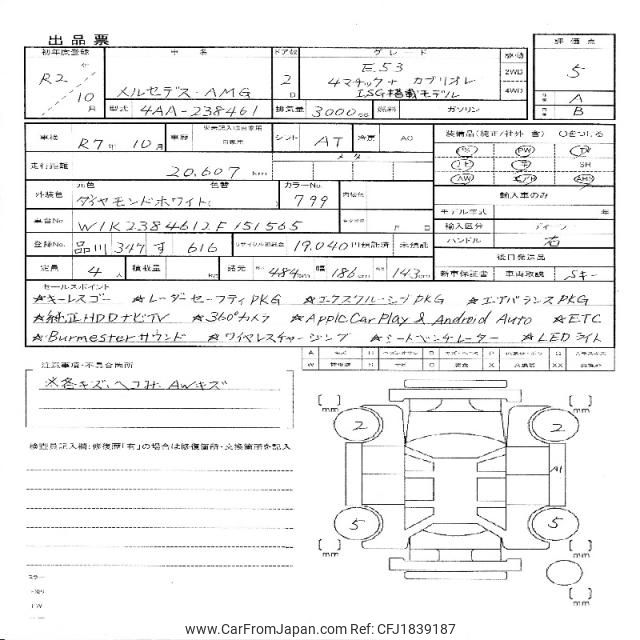 出品票
初年度登録 車名 ドア数 グレード 駆動 評価点
R2年 10月 メルセデス・AMG 2D E53 2WD 5
4マチック+ カブリオレ 4WD
ISG搭載モデル A
型式 4AA-238461 排気量 3000cc 燃料 ガソリン B
車検 R7年 10月 車歴 自家用 シフト AT 冷房 AC 装備品(純正/社外 含) ○をつける
走行距離 20,607 km メーター PS PW SH AW
外装色 元色 色替 カラーNo. 内装色 輸入車のみ
ダイヤモンドホワイト( ) 799 モデル年式 年
車台No W1K2384612F151565 輸入区分 ディーラー
登録No. 品川 347 す 616 リサイクル預託金 19,040円預託済 未預託 ハンドル 右
定員 4人 積載量 諸元 長484cm 幅186cm 高143cm 後日発送品
新車保証書 車両取説 Sキー
セールスポイント
☆キーレスゴー ☆レーダーセーフティPKG ☆エクスクルーシブPKG ☆エアバランスPKG
☆純正HDDナビTV ☆360°カメラ ☆Apple Car Play & Android Auto ☆ETC
☆Burmesterサウンド ☆ワイヤレスチャージング ☆シートベンチレーター ☆LEDライト
注意事項・不具合箇所
※各キズ、ヘコミ、AWキズ
検査員記入欄:修復歴「有」の場合は修復箇所・交換箇所を記入
[ ] mm [ ] mm
2 2
A1
5 5
[ ] mm [ ] mm
[ ] mm
www.CarFromJapan.com Ref: CFJ1839187